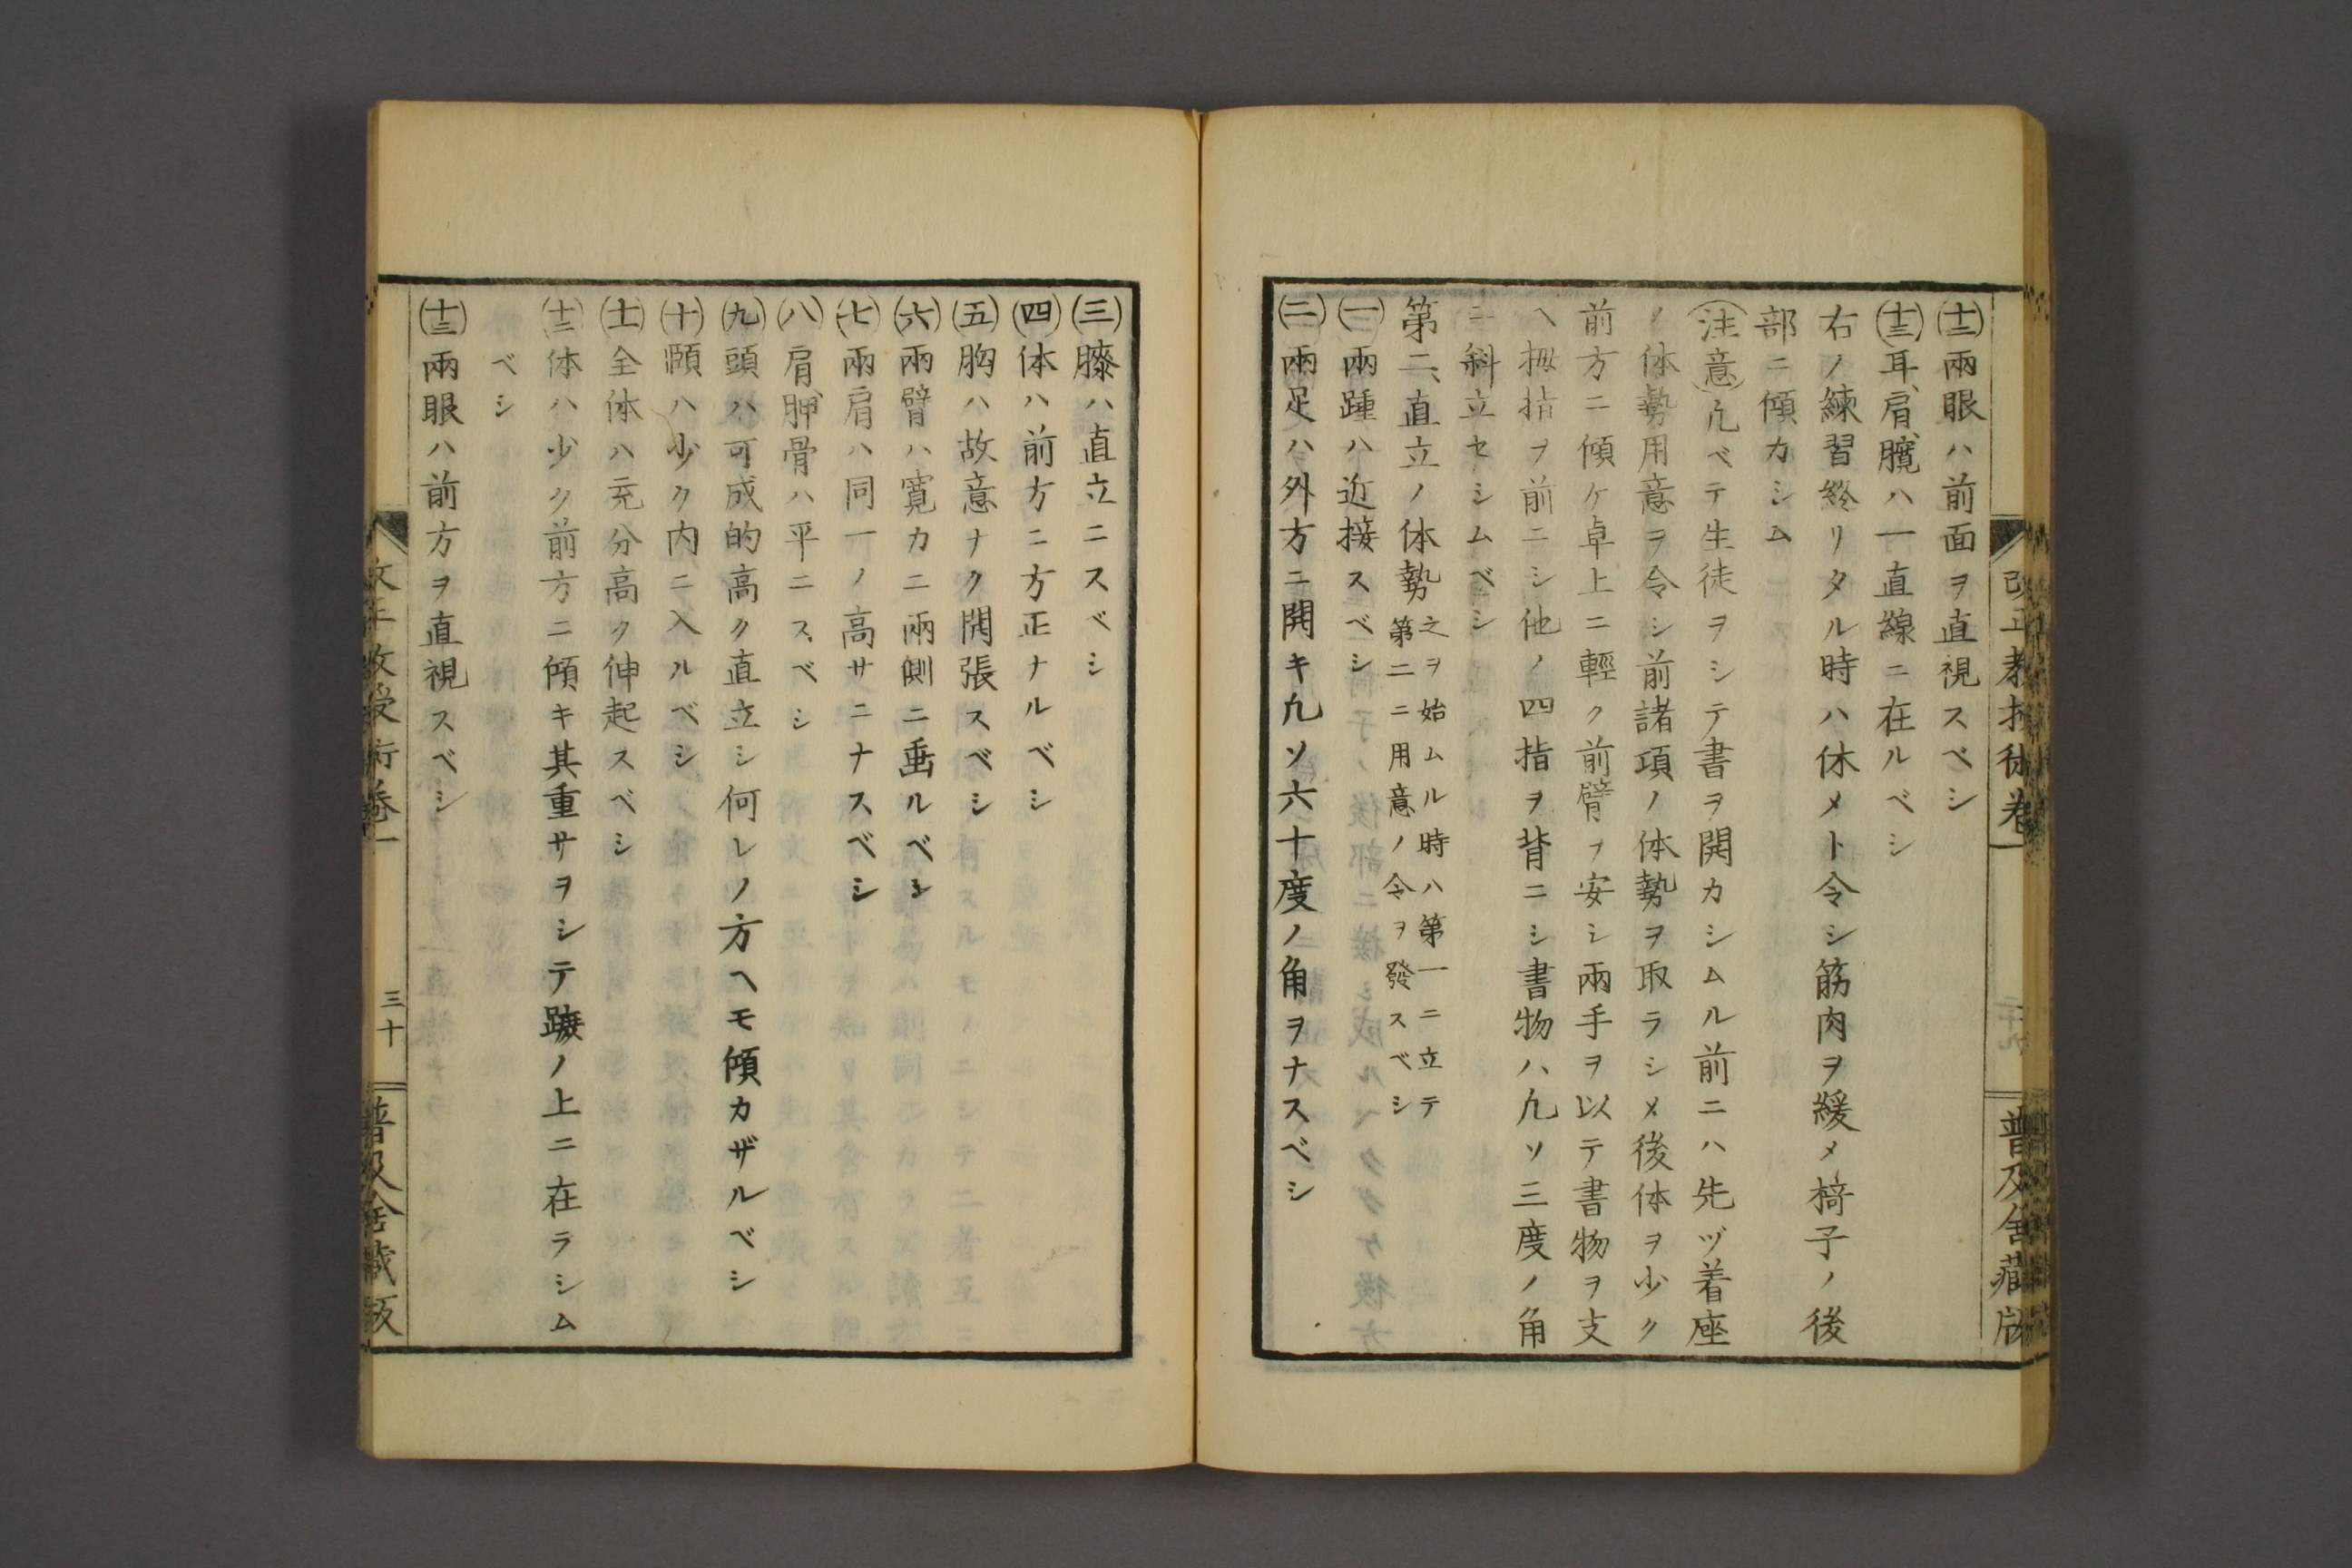 改正教授術卷一
普及舍藏版
(十二)兩眼ハ前面ヲ直視スベシ
(十三)耳、肩、臗ハ一直線ニ在ルベシ
右ノ練習終リタル時ハ休メト令シ筋肉ヲ緩メ椅子ノ後
部ニ傾カシム
(注意)凢ベテ生徒ヲシテ書ヲ開カシムル前ニハ先ヅ着座
ノ体勢用意ヲ令シ前諸項ノ体勢ヲ取ラシメ後体ヲ少ク
前方ニ傾ケ卓上ニ輕ク前臂ヲ安シ兩手ヲ以テ書物ヲ支
ヘ拇指ヲ前ニシ他ノ四指ヲ背ニシ書物ハ凢ソ三度ノ角
ニ斜立セシムベシ
第二、直立ノ体勢
之ヲ始ムル時ハ第一ニ立テ
第二ニ用意ノ令ヲ發スベシ
(一)兩踵ハ近接スベシ
(二)兩足ハ外方ニ開キ凢ソ六十度ノ角ヲナスベシ
(三)膝ハ直立ニスベシ
(四)体ハ前方ニ方正ナルベシ
(五)胸ハ故意ナク開張スベシ
(六)兩臂ハ寛カニ兩側ニ垂ルベシ
(七)兩肩ハ同一ノ高サニナスベシ
(八)肩胛骨ハ平ニスベシ
(九)頭ハ可成的高ク直立シ何レノ方ヘモ傾カザルベシ
(十)頤ハ少ク内ニ入ルベシ
(十一)全体ハ充分高ク伸起スベシ
(十二)体ハ少ク前方ニ傾キ其重サヲシテ蹠ノ上ニ在ラシム
ベシ
(十三)兩眼ハ前方ヲ直視スベシ
改正教授術卷一
三十
普及舍藏版